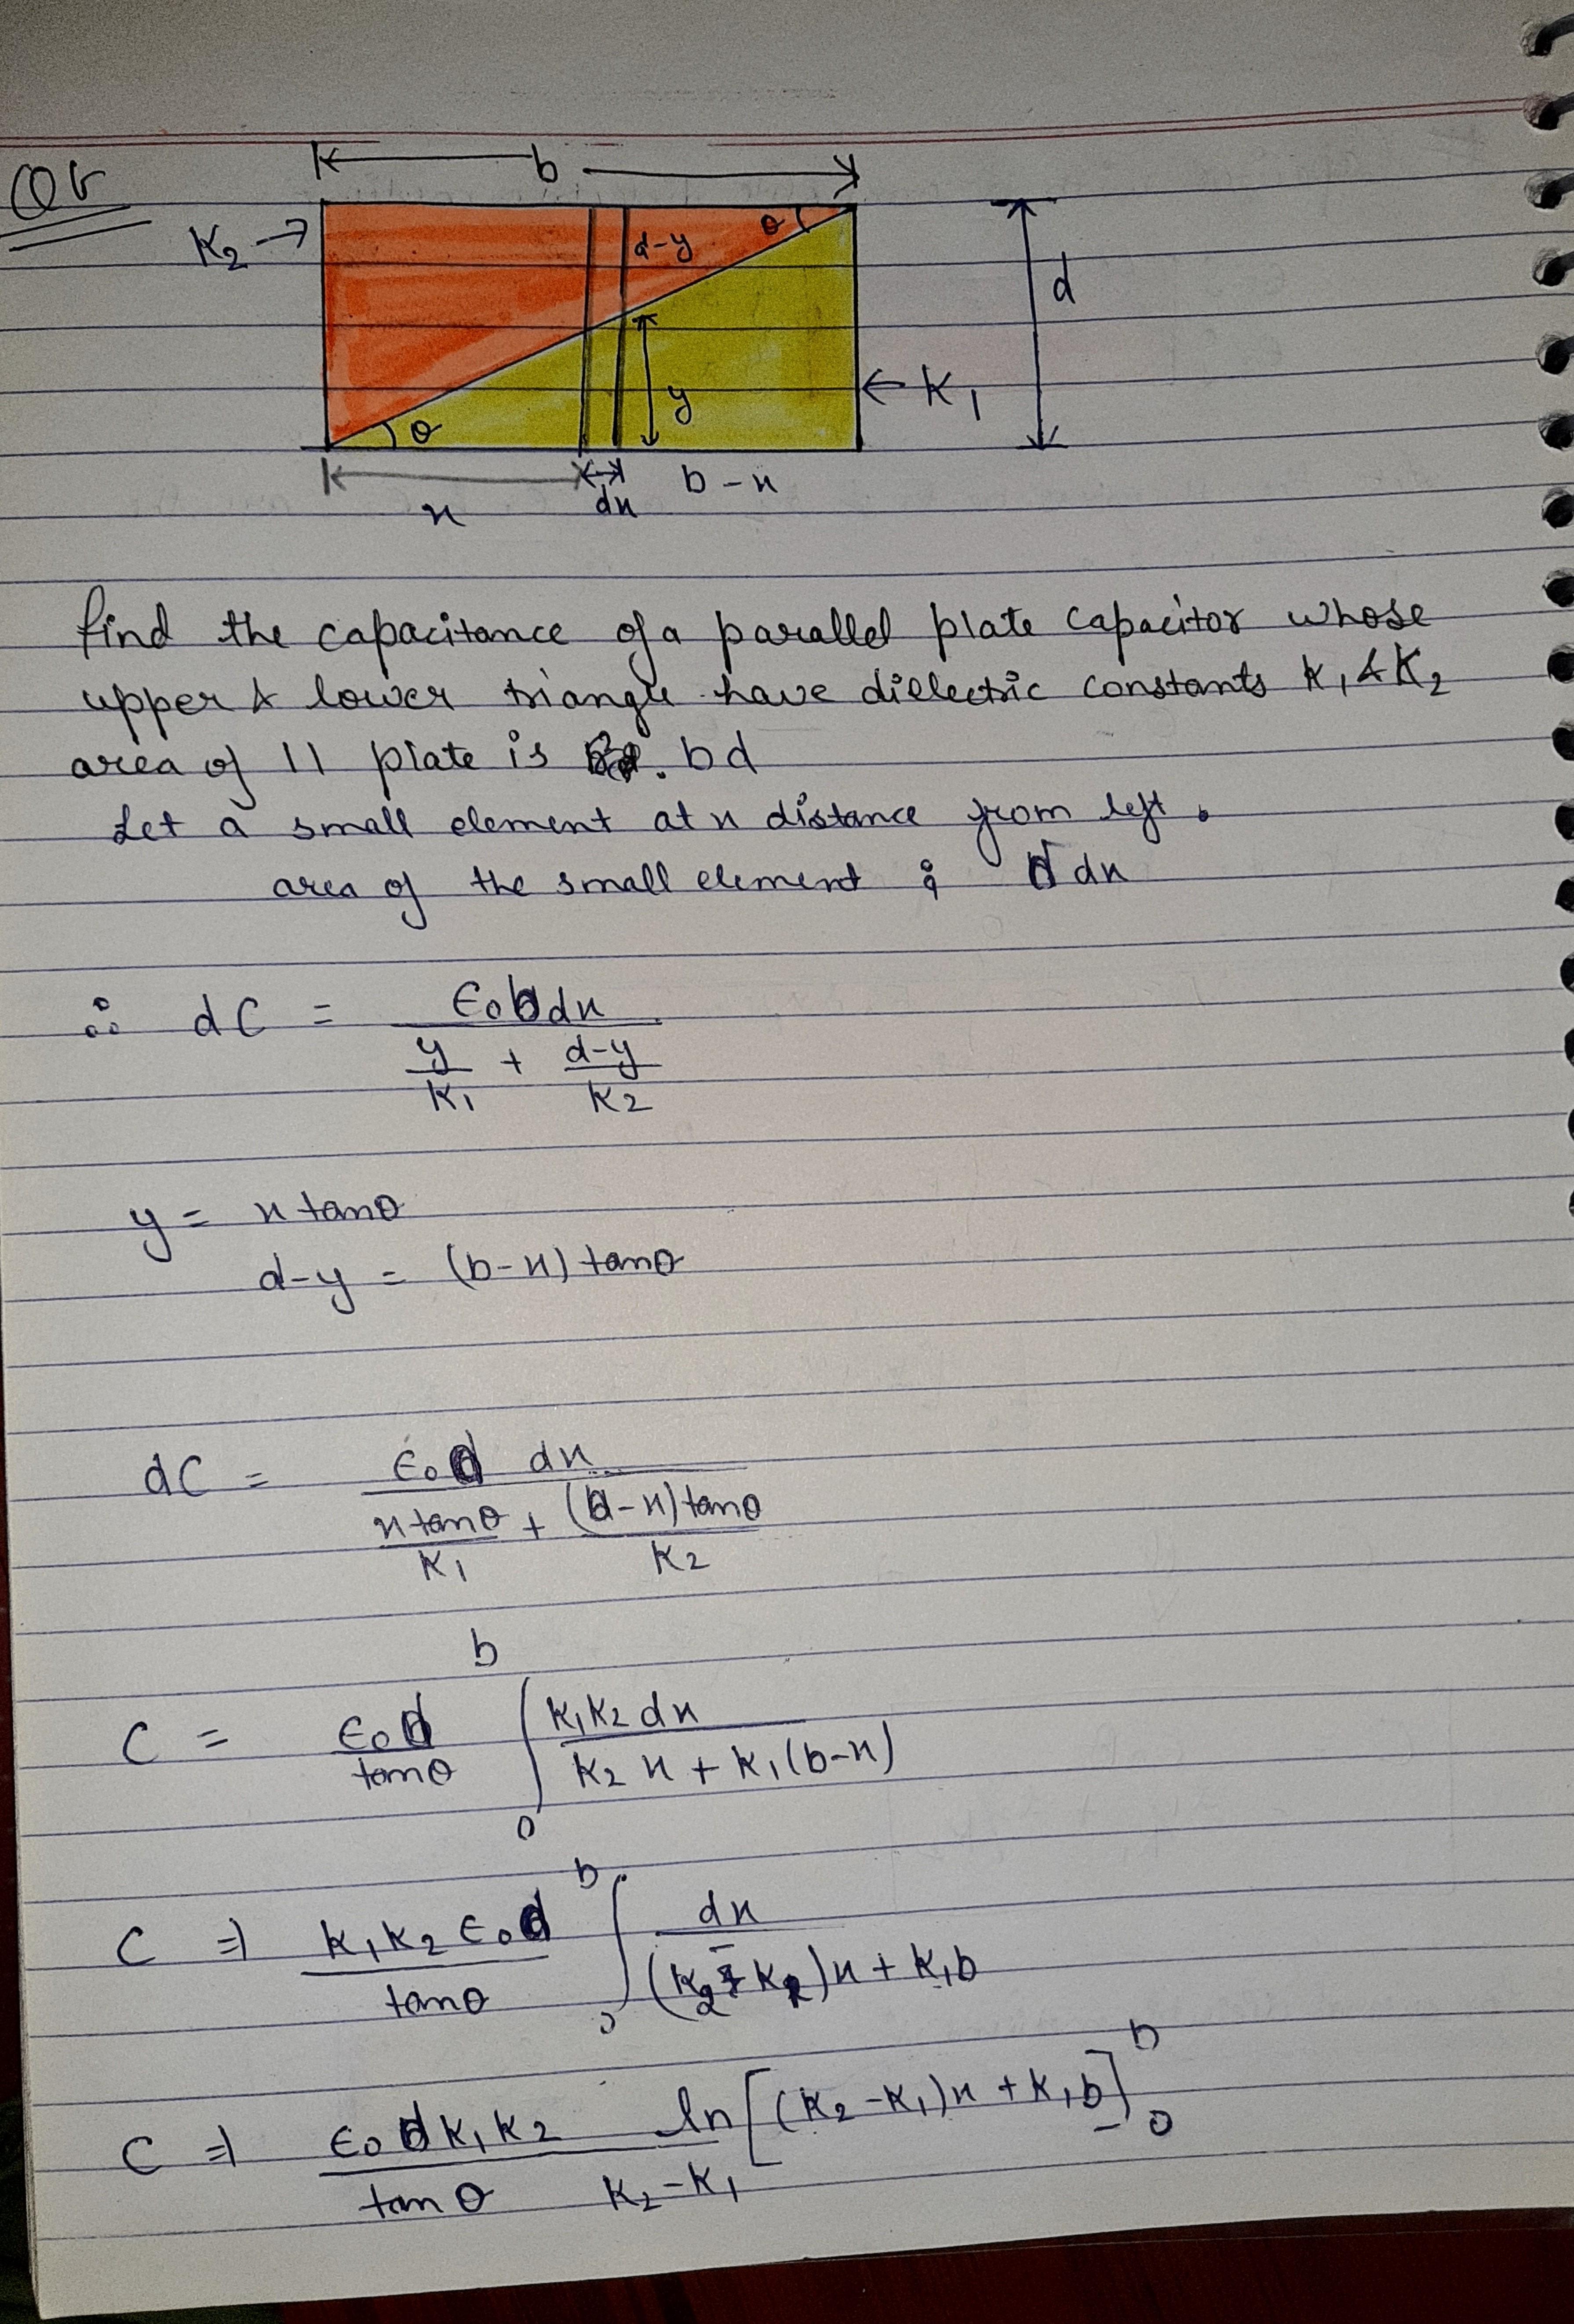 Qv
b
K₂ →
d-y
θ
d
← K₁
y
θ
x
dx
b-x
find the capacitance of a parallel plate capacitor whose
upper & lower triangle have dielectric constants K₁ & K₂
area of || plate is bd
Let a small element at x distance from left.
area of the small element : d dx
∴ dC = ε₀ddx / (y/K₁ + (d-y)/K₂)
y = x tanθ
d-y = (b-x) tanθ
dC = ε₀d dx / (x tanθ/K₁ + (b-x) tanθ/K₂)
C = ε₀d/tanθ ∫₀ᵇ K₁K₂dx / (K₂x + K₁(b-x))
C ⇒ K₁K₂ε₀d/tanθ ∫₀ᵇ dx / ((K₂-K₁)x + K₁b)
C ⇒ ε₀dK₁K₂/tanθ ln[(K₂-K₁)x + K₁b]₀ᵇ / K₂-K₁